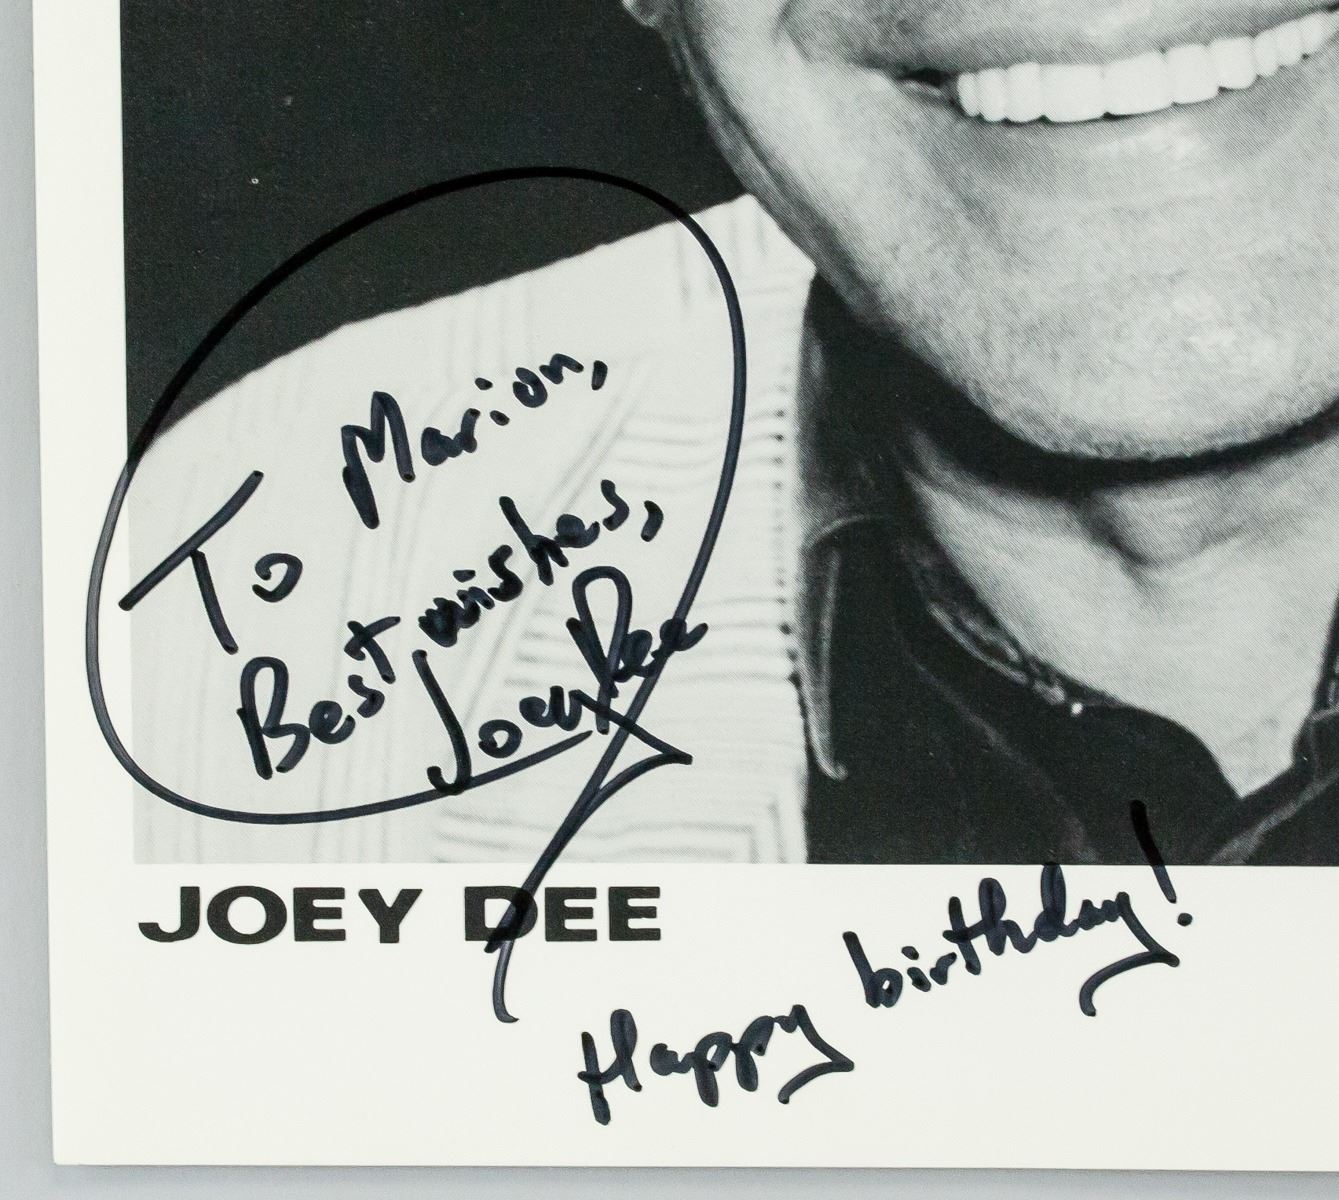 To Marion,
Best wishes,
Joey Dee
JOEY DEE
Happy birthday!